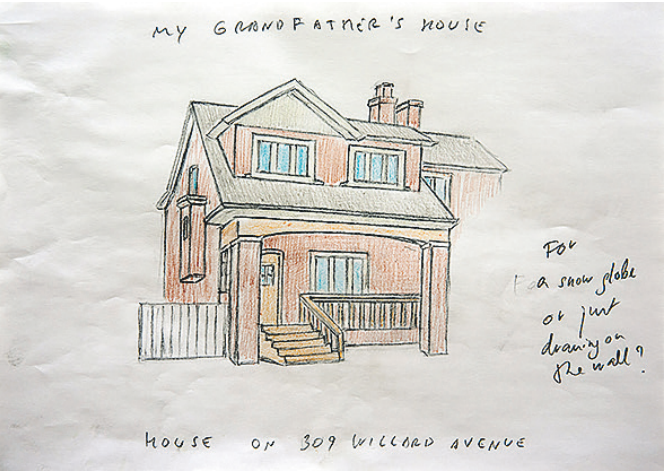 MY GRANDFATHER'S HOUSE
For
a snow globe
or just
drawing on
the wall?
HOUSE ON 309 WILLARD AVENUE